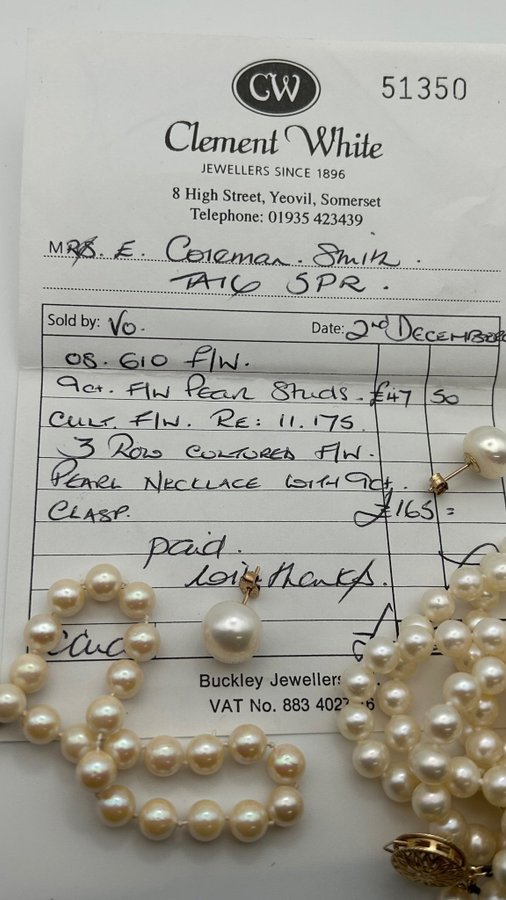 CW
51350
Clement White
JEWELLERS SINCE 1896
8 High Street, Yeovil, Somerset
Telephone: 01935 423439
MRS. E. Coleman. Smith.
TA16 5PR.
Sold by: Vo. Date: 2nd DECEMBER
08. 610 F/W.
9ct. F/W Pearl Studs. £47 50
Cult. F/W. RE: 11.175.
3 Row Cultured F/W.
Pearl Necklace with 9ct.
Clasp. £165 =
paid.
with thanks.
Buckley Jewellers
VAT No. 883 402 6